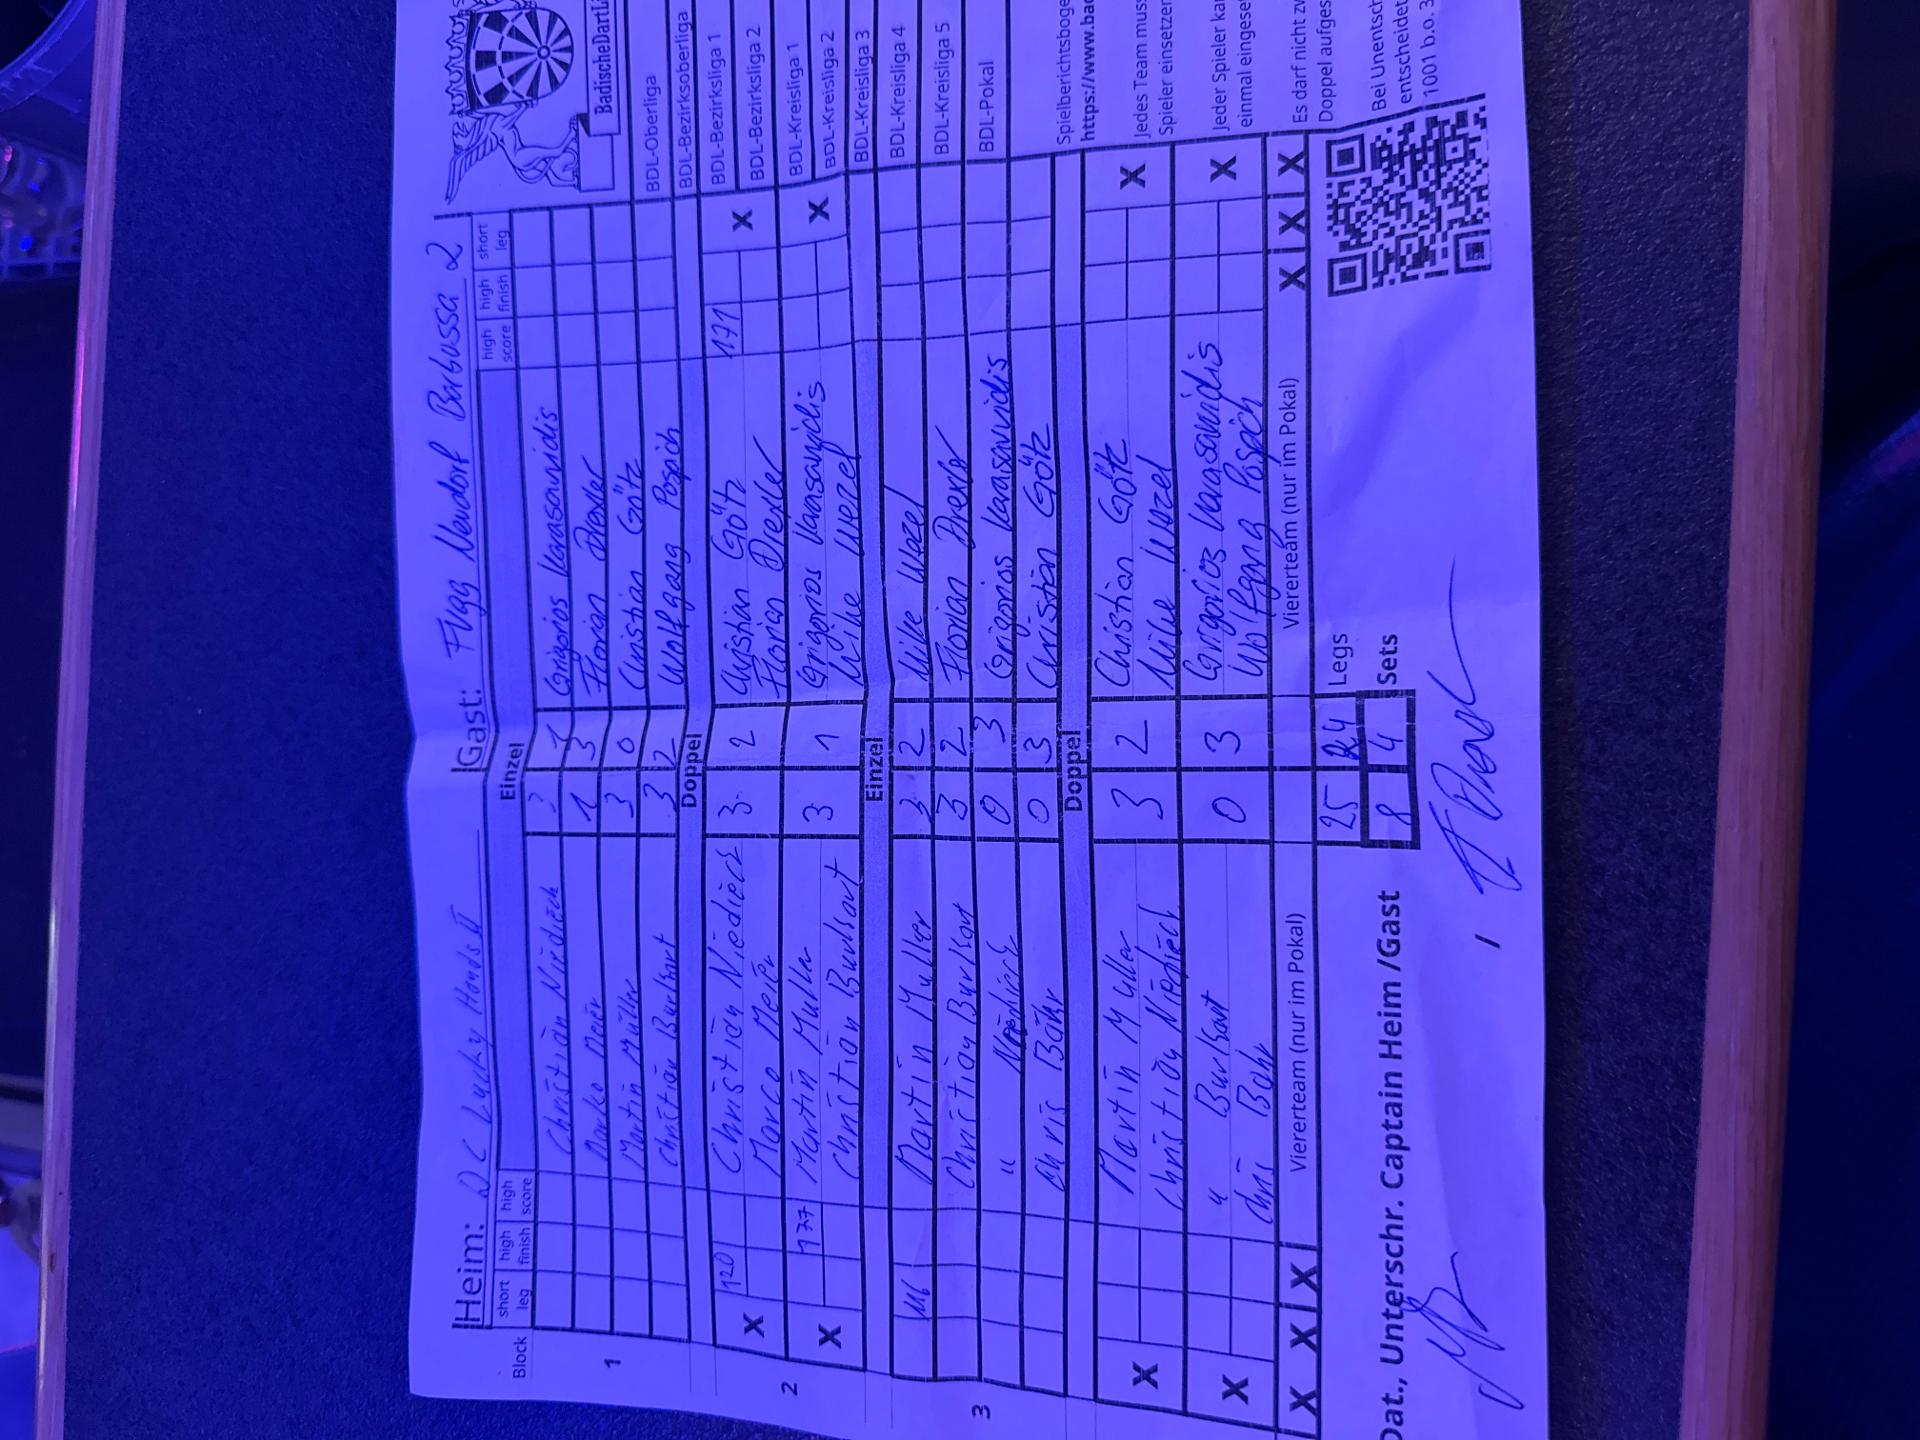 Heim: DC Lucky Hands II Gast: Flugg Neudorf Barbossa 2
BadischeDartLi
Block short leg high finish high score Einzel high score high finish short leg
1
Christian Niedieck 3 1 Grigorios Karasavidis
Marko Meier 1 3 Florian Drexler
Martin Müller 3 0 Christian Götz
Christian Burkart 3 2 Wolfgang Pospich
Doppel
2
X 120 Christian Niedieck 3 2 Christian Götz 171 X
Marco Meier Florian Drexler
X 177 Martin Muller 3 1 Grigorios Karasavidis X
Christian Burkart Mike Wezel
Einzel
3
116 Martin Muller 3 2 Mike Wezel
Christian Burkart 3 2 Florian Drexler
" Niedieck 0 3 Grigorios Karasavidis
Chris Bähr 0 3 Christian Götz
Doppel
X Martin Muller 3 2 Christian Götz X
Christian Niedieck Mike Wezel
X " Burkart 0 3 Grigorios Karasavidis X
Chris Bähr Wolfgang Pospich
X X X Viererteam (nur im Pokal) Viererteam (nur im Pokal) X X X
25 24 Legs
8 4 Sets
Dat., Unterschr. Captain Heim /Gast
/
BDL-Oberliga
BDL-Bezirksoberliga
BDL-Bezirksliga 1
BDL-Bezirksliga 2
BDL-Kreisliga 1
BDL-Kreisliga 2
BDL-Kreisliga 3
BDL-Kreisliga 4
BDL-Kreisliga 5
BDL-Pokal
Spielberichtsboge
https://www.bad
Jedes Team mus
Spieler einsetzen
Jeder Spieler ka
einmal eingese
Es darf nicht zw
Doppel aufges
Bei Unentsch
entscheidet
1001 b.o.3